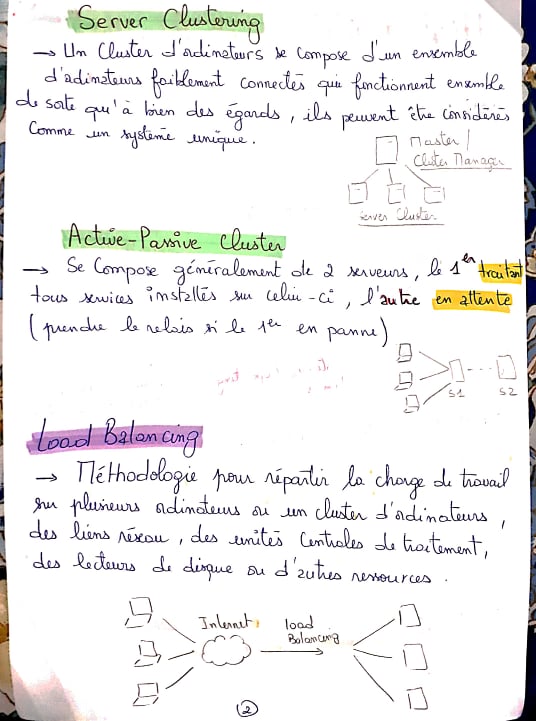 Server Clustering
→ Un Cluster d'ordinateurs se compose d'un ensemble
d'ordinateurs faiblement connectés qui fonctionnent ensemble
de sorte qu'à bien des égards, ils peuvent être considérés
Comme un système unique.
Master /
Cluster Manager
Server Cluster
Active-Passive Cluster
→ Se Compose généralement de 2 serveurs, le 1er traitant
tous services installés sur celui-ci, l'autre en attente
(prendre le relais si le 1er en panne)
S1 S2
Load Balancing
→ Méthodologie pour répartir la charge de travail
sur plusieurs ordinateurs ou un cluster d'ordinateurs,
des liens réseau, des unités Centrales de traitement,
des lecteurs de disque ou d'autres ressources.
Internet load
Balancing
2